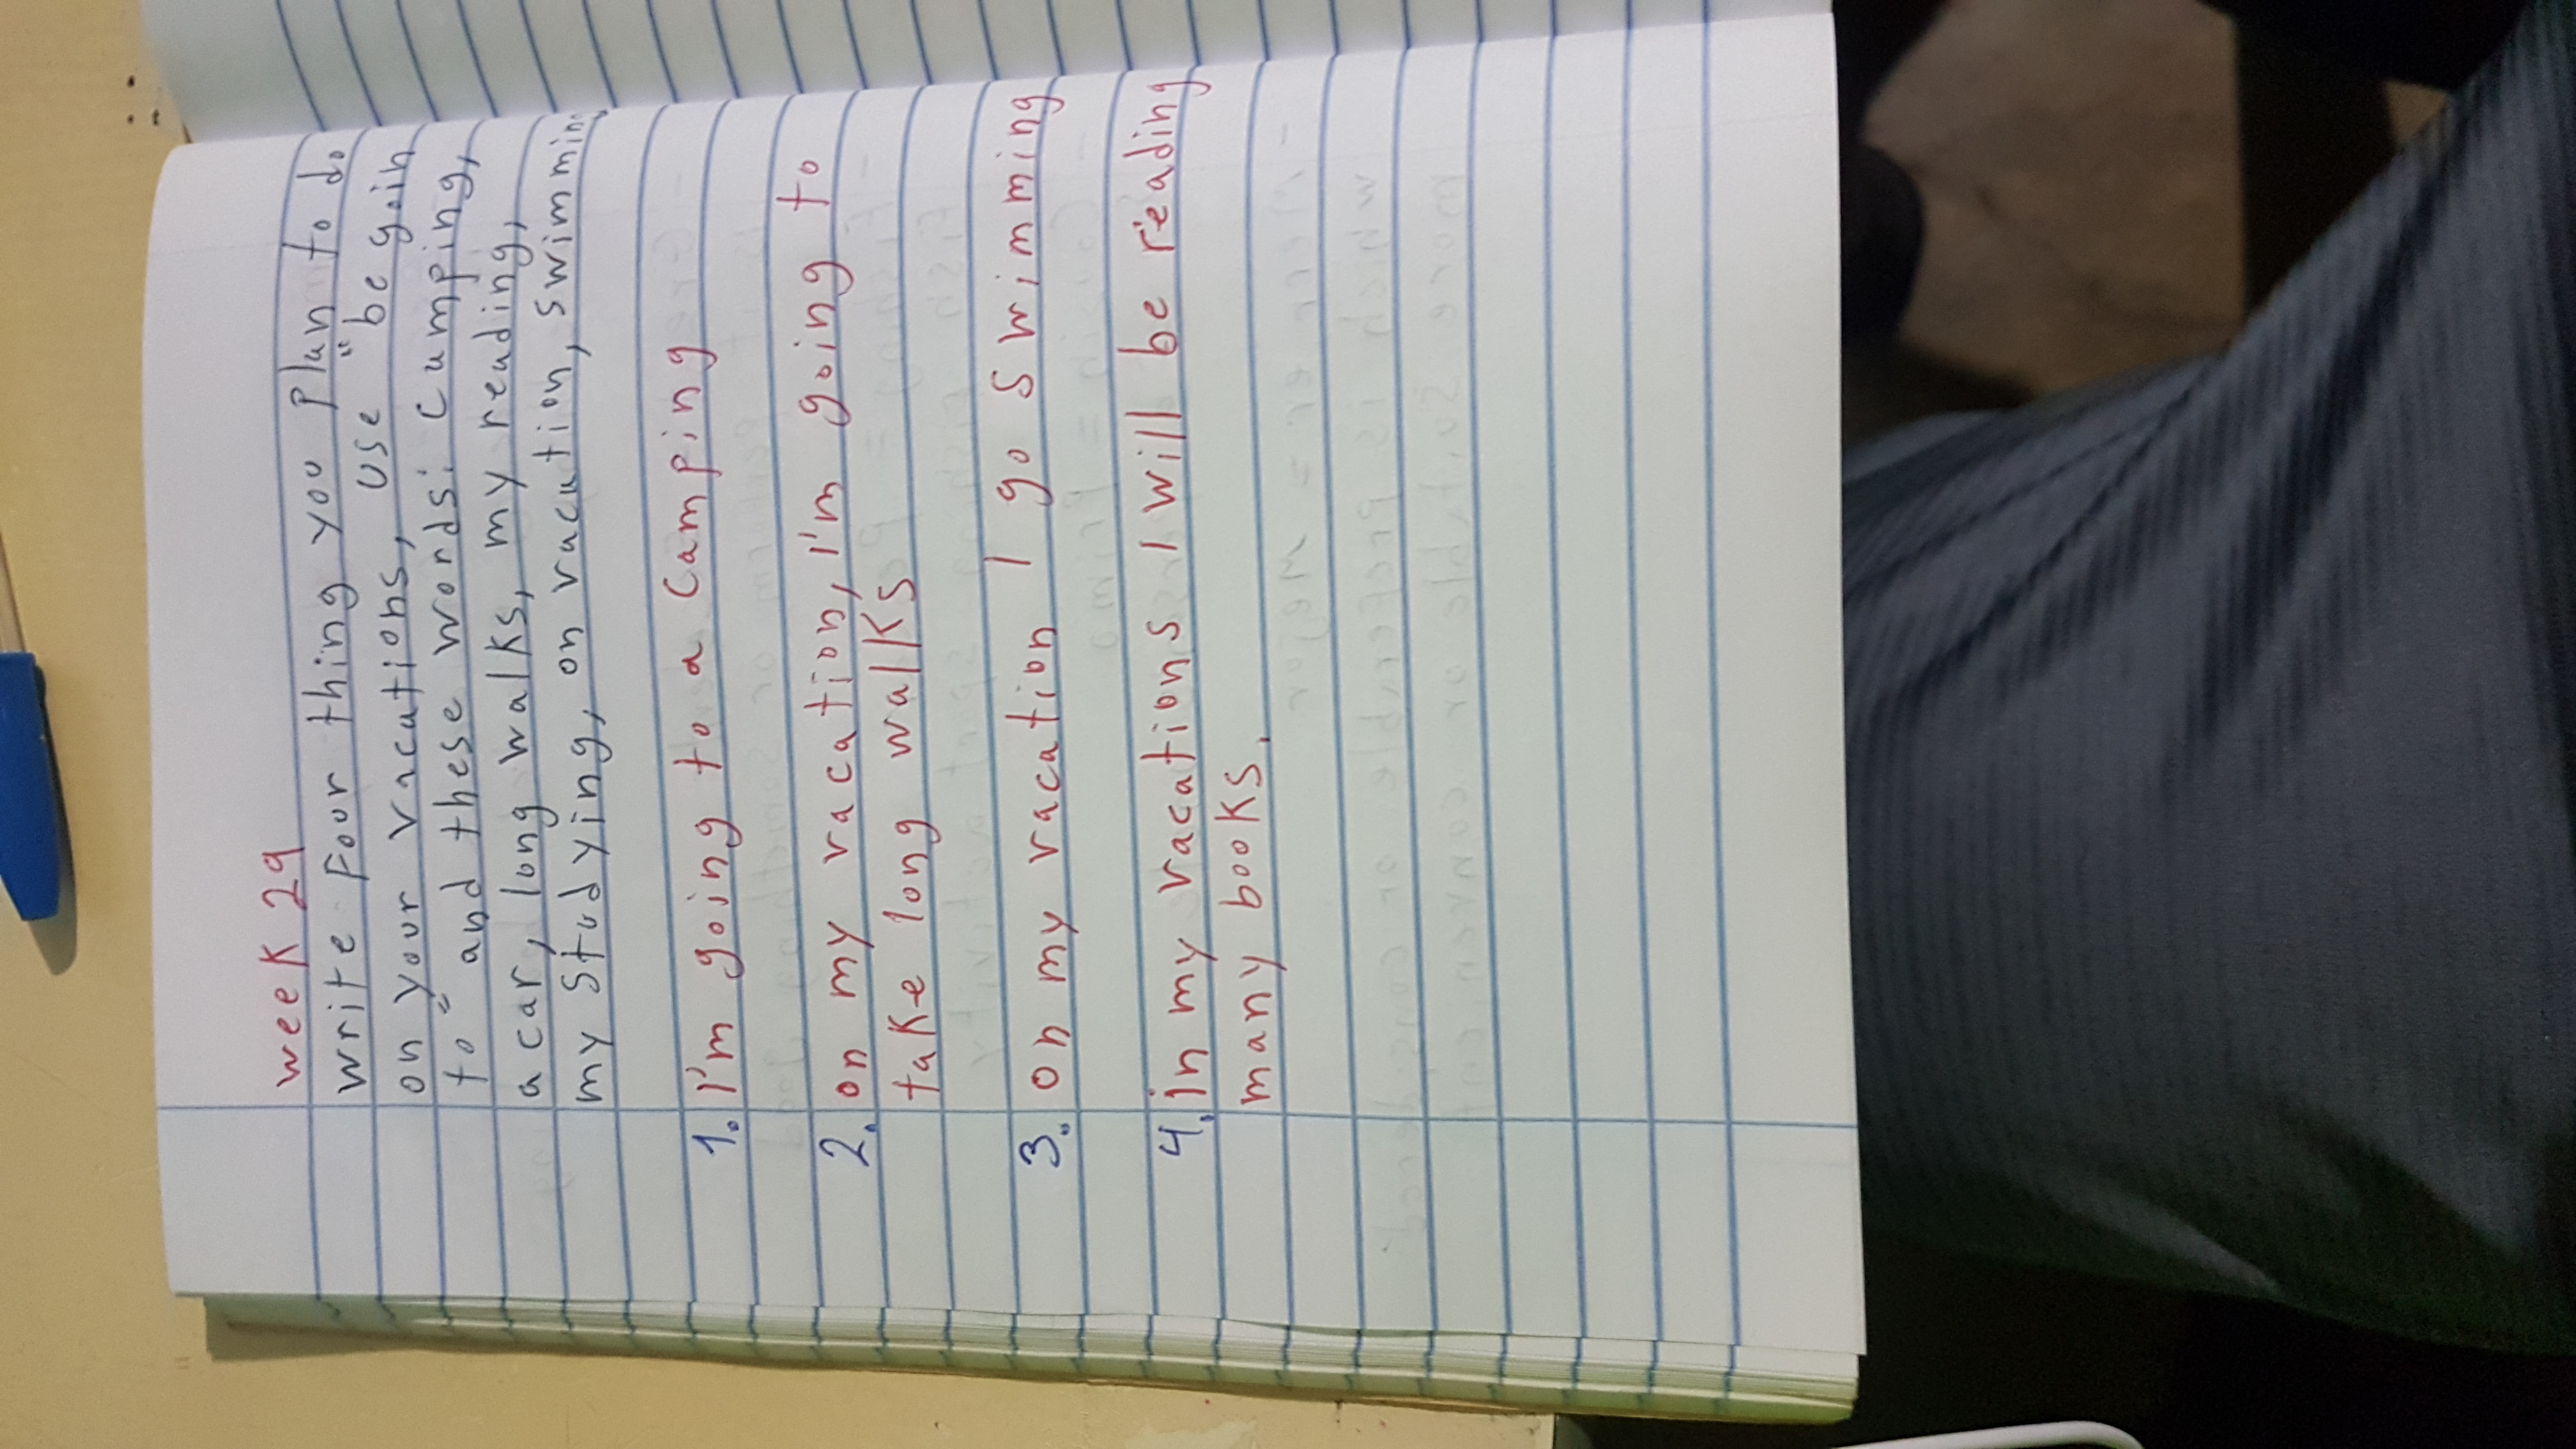 week 29
write four thing you plan to do
on your vacations, use "be goin
to" and these words: camping,
a car, long walks, my reading,
my studying, on vacation, swimming
1. I'm going to a camping
2. on my vacation, I'm going to
take long walks
3. on my vacation I go swimming
4. in my vacations I will be reading
many books.